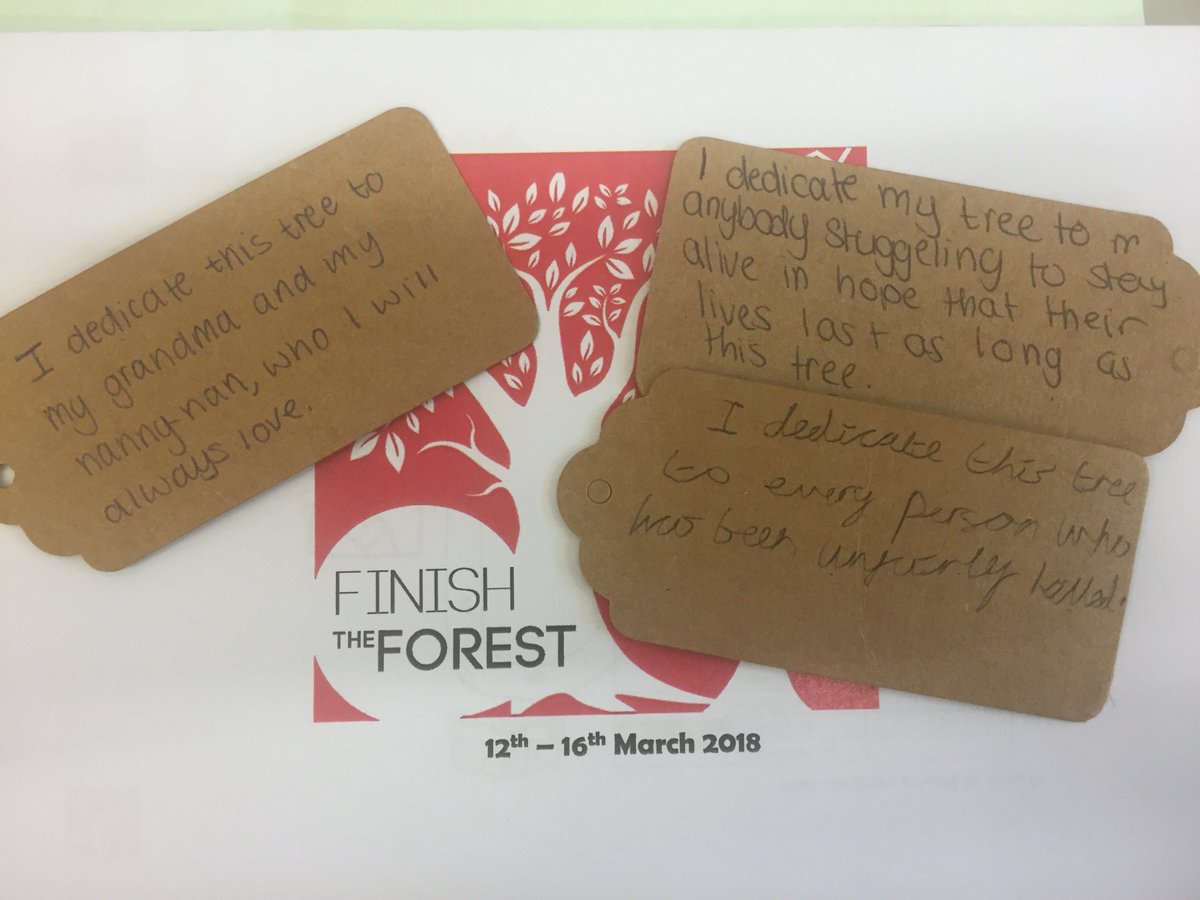 I dedicate this tree to
my grandma and my
nanny-nan, who I will
always love.
I dedicate my tree to m
anybody stuggeling to stay
alive in hope that their
lives last as long as
this tree.
I dedicate this tree
to every person who
has been unfairly killed.
FINISH
THE FOREST
12th – 16th March 2018